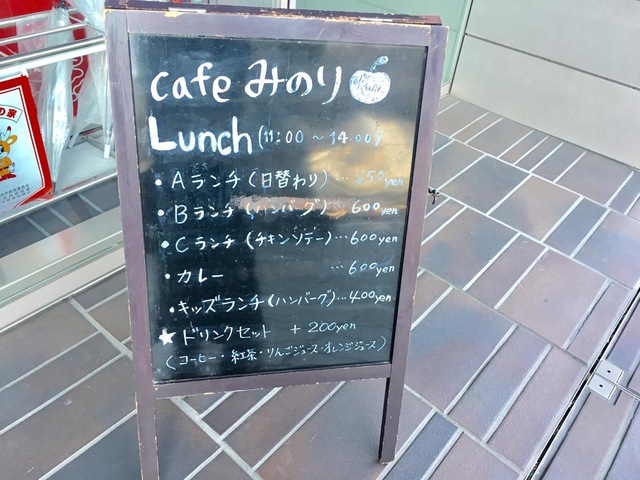 cafe みのり
Lunch (11:00 ～ 14:00)
・Aランチ (日替わり) … 650yen
・Bランチ (ハンバーグ) 600yen
・Cランチ (チキンソテー) … 600yen
・カレー … 600yen
・キッズランチ (ハンバーグ) … 400yen
★ドリンクセット + 200yen
(コーヒー・紅茶・りんごジュース・オレンジジュース)
の家